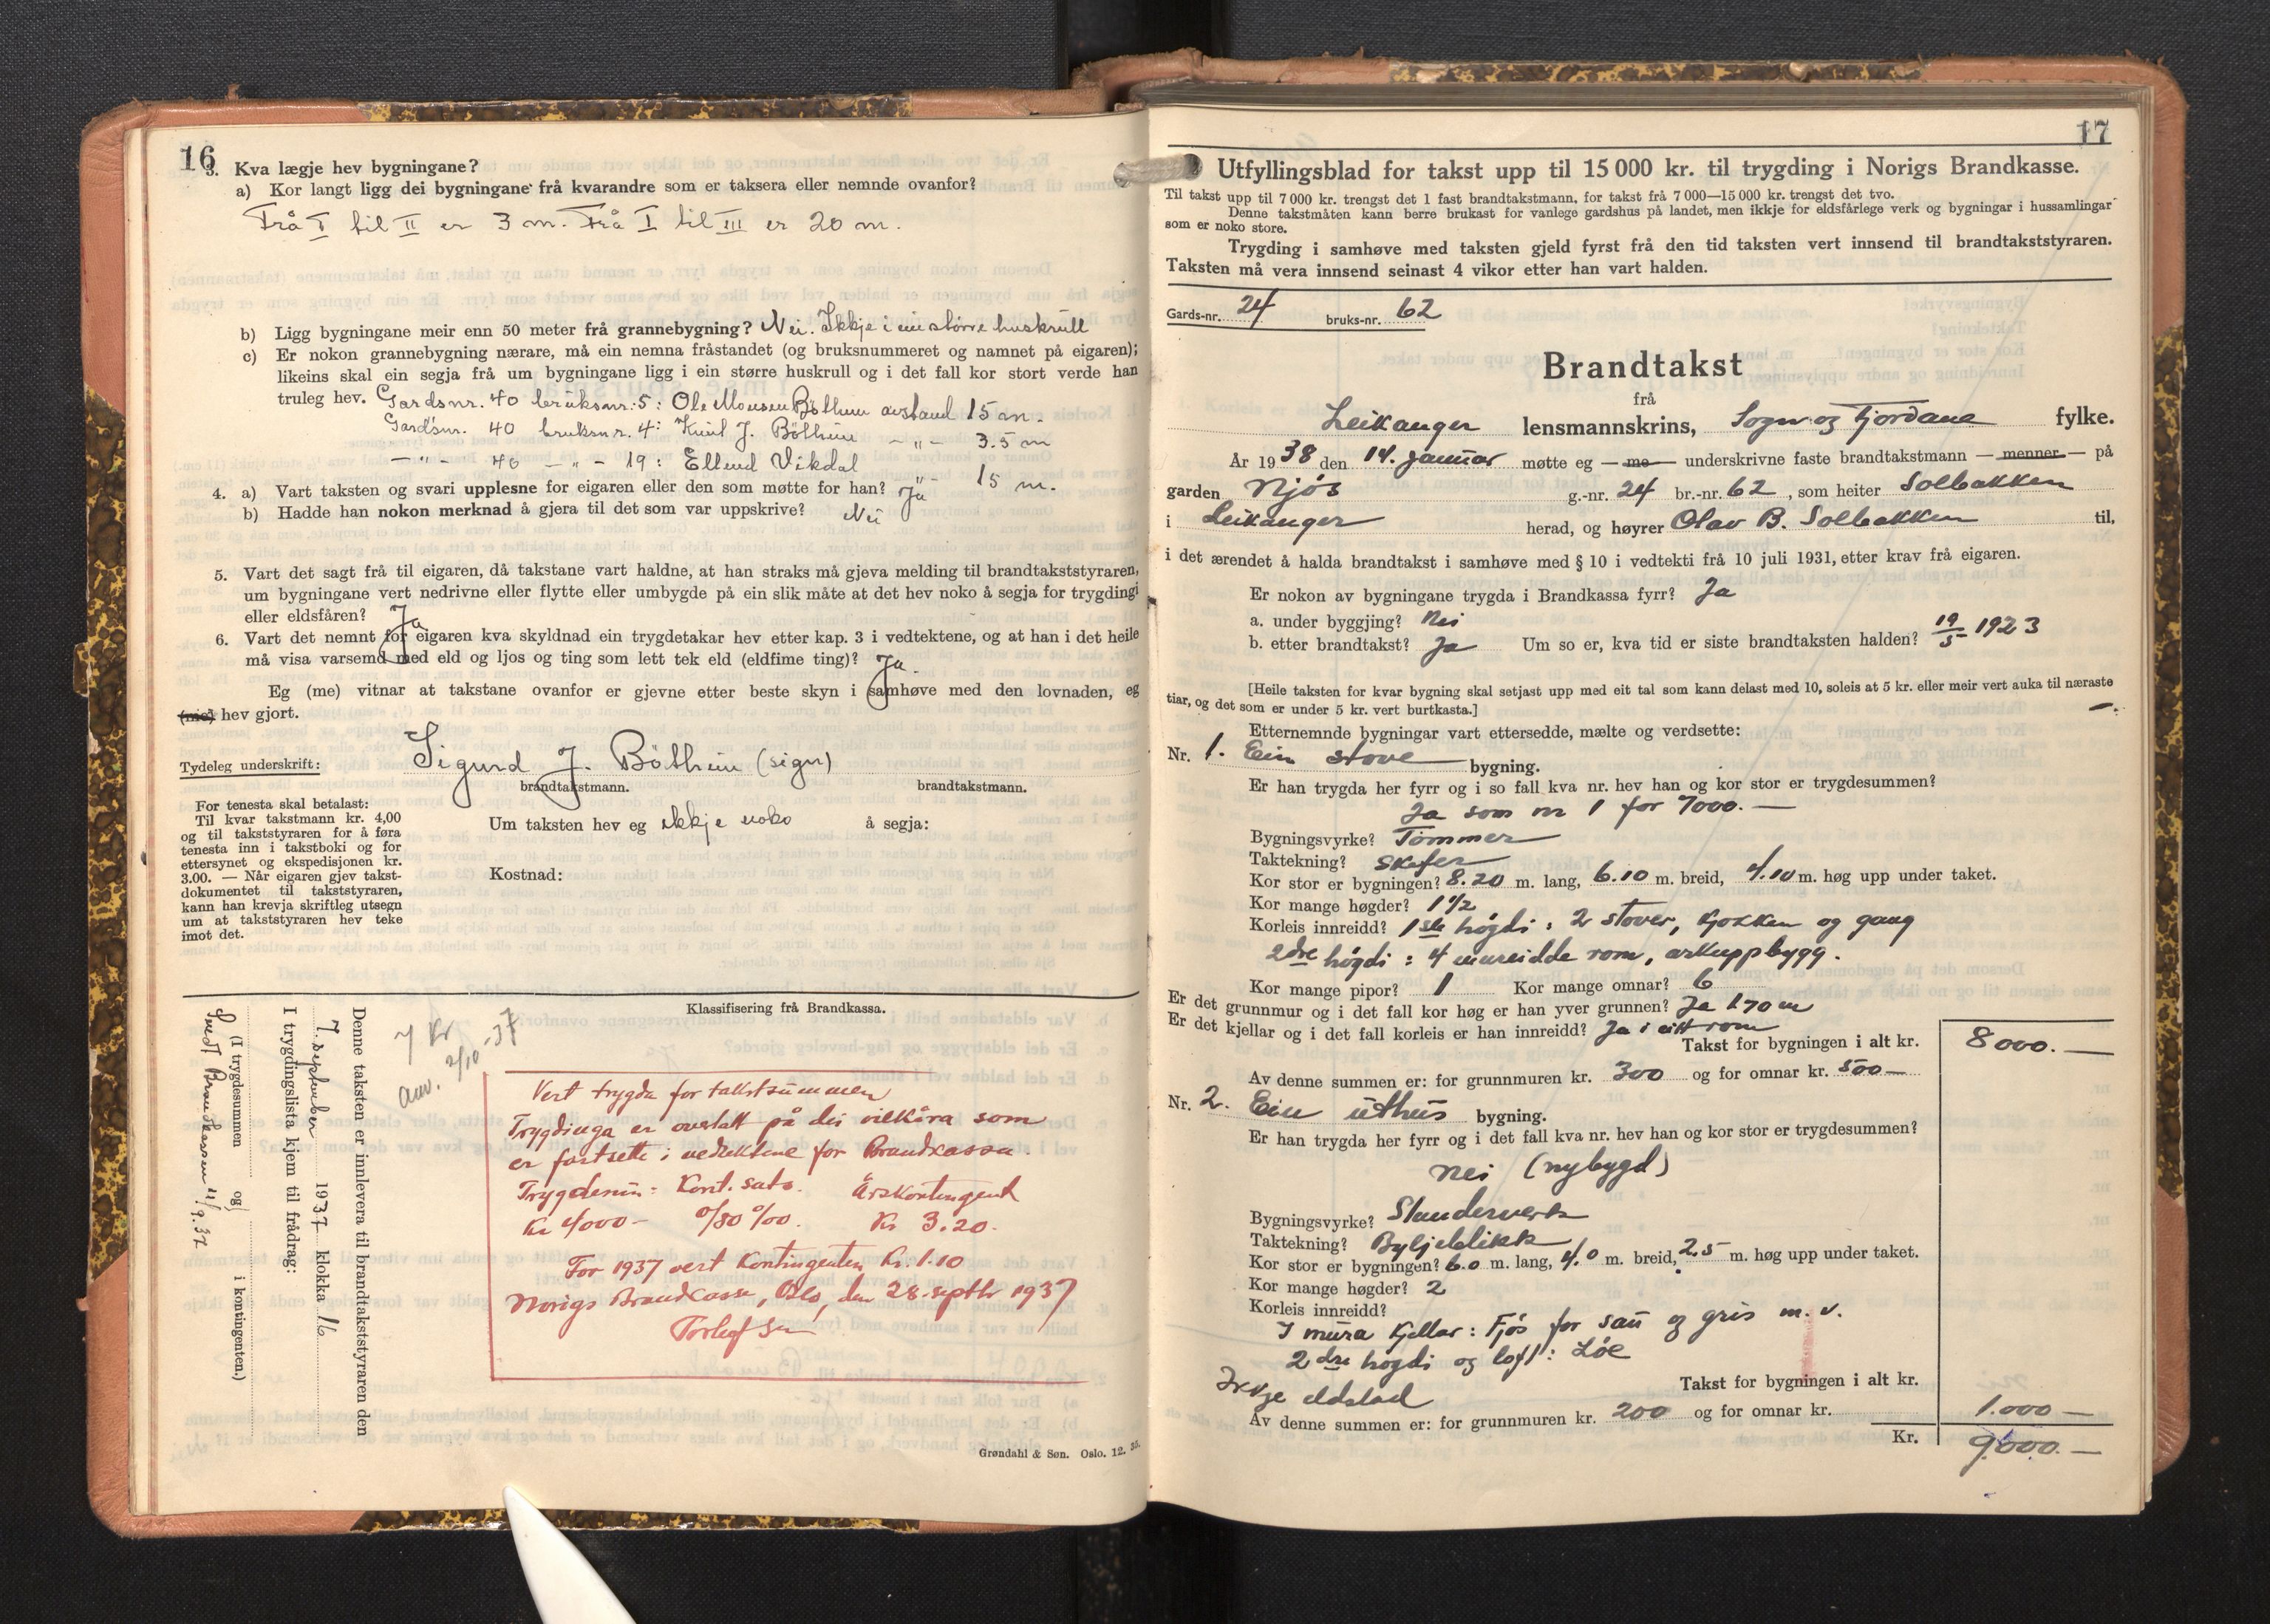 16
3. Kva lægje hev bygningane?
a) Kor langt ligg dei bygningane frå kvarandre som er taksera eller nemnde ovanfor?
Frå I til II er 3 m. Frå I til III er 20 m.
b) Ligg bygningane meir enn 50 meter frå grannebygning? Nei. Ikkje i ein større huskrull
c) Er nokon grannebygning nærare, må ein nemna fråstandet (og bruksnummeret og namnet på eigaren);
likeins skal ein segja frå um bygningane ligg i ein større huskrull og i det fall kor stort verde han
truleg hev. Gardsnr. 40 bruksnr. 5: Ole Monsen Böthun avstand 15 m.
Gardsnr. 40 bruksnr. 4: Knut J. Böthun -"- 35 m
-"- 40 -"- 19: Ellend Vikdal -"- 15 m.
4. a) Vart taksten og svari upplesne for eigaren eller den som møtte for han? Ja
b) Hadde han nokon merknad å gjera til det som var uppskrive? Nei
5. Vart det sagt frå til eigaren, då takstane vart haldne, at han straks må gjeva melding til brandtakststyraren,
um bygningane vert nedrivne eller flytte eller umbygde på ein slik måte at det hev noko å segja for trygdingi
eller eldsfåren? Ja
6. Vart det nemnt for eigaren kva skyldnad ein trygdetakar hev etter kap. 3 i vedtektene, og at han i det heile
må visa varsemd med eld og ljos og ting som lett tek eld (eldfime ting)? Ja.
Eg (me) vitnar at takstane ovanfor er gjevne etter beste skyn i samhøve med den lovnaden, eg
(me) hev gjort.
Tydeleg underskrift: Sigurd J. Böthun (sign)
brandtakstmann. brandtakstmann.
For tenesta skal betalast:
Til kvar takstmann kr. 4,00
og til takststyraren for å føra
tenesta inn i takstboki og for
ettersynet og ekspedisjonen kr.
3.00. — Når eigaren gjev takst-
dokumentet til takststyraren,
kann han krevja skriftleg utsegn
um at takststyraren hev teke
imot det.
Um taksten hev eg ikkje noko å segja:
Kostnad:
Klassifisering frå Brandkassa.
Denne taksten er innlevera til brandtakststyraren den
7. september 1937 klokka 16
I trygdingslista kjem til frådrag:
(I trygdesummen og i kontingenten.)
Sendt Brandkassen 11/9.37
7 Kr
2/10 -37
Vert trygda for takstsummen
Trygdinga er overtatt på dei vilkåra som
er fastsette i vedtektene for Brandkassa.
Trygdesum: Kont. sats. Årskontingent
Kr 4000- 0/80 ‰. Kr 3.20.
For 1937 vert Kontingenten Kr. 1.10
Norigs Brandkasse, Oslo, den 28. septbr 1937
Grøndahl & Søn. Oslo. 12. 35.
17
Utfyllingsblad for takst upp til 15 000 kr. til trygding i Norigs Brandkasse.
Til takst upp til 7 000 kr. trengst det 1 fast brandtakstmann, for takst frå 7 000—15 000 kr. trengst det tvo.
Denne takstmåten kann berre brukast for vanlege gardshus på landet, men ikkje for eldsfårlege verk og bygningar i hussamlingar
som er noko store.
Trygding i samhøve med taksten gjeld fyrst frå den tid taksten vert innsend til brandtakststyraren.
Taksten må vera innsend seinast 4 vikor etter han vart halden.
Gards-nr. 24 bruks-nr. 62
Brandtakst
frå
Leikanger lensmannskrins, Sogn og Fjordane fylke.
År 1938 den 14. januar møtte eg — me — underskrivne faste brandtakstmann — menner — på
garden Njøs g.-nr. 24 br.-nr. 62, som heiter Solbakken
i Leikanger herad, og høyrer Olav B. Solbakken til,
i det ærendet å halda brandtakst i samhøve med § 10 i vedtekti frå 10 juli 1931, etter krav frå eigaren.
Er nokon av bygningane trygda i Brandkassa fyrr? Ja
a. under byggjing? Nei
b. etter brandtakst? Ja Um so er, kva tid er siste brandtaksten halden? 19/5 1923
[Heile taksten for kvar bygning skal setjast upp med eit tal som kann delast med 10, soleis at 5 kr. eller meir vert auka til næraste
tiar, og det som er under 5 kr. vert burtkasta.]
Etternemnde bygningar vart ettersedde, mælte og verdsette:
Nr. 1. Ein stove bygning.
Er han trygda her fyrr og i so fall kva nr. hev han og kor stor er trygdesummen?
Ja som nr 1 for 7000.—
Bygningsvyrke? Tømmer
Taktekning? Skifer
Kor stor er bygningen? 8.20 m. lang, 6.10 m. breid, 4.10 m. høg upp under taket.
Kor mange høgder? 1 1/2
Korleis innreidd? 1ste høgdi: 2 stover, kjøkken og gang
2dre høgdi: 4 innreidde rom, arkuppbygg.
Kor mange pipor? 1 Kor mange omnar? 6
Er det grunnmur og i det fall kor høg er han yver grunnen? Ja 1.70 m
Er det kjellar og i det fall korleis er han innreidd? Ja i eitt rom
Takst for bygningen i alt kr. 8000.—
Av denne summen er: for grunnmuren kr. 300 og for omnar kr. 500—
Nr. 2. Ein uthus bygning.
Er han trygda her fyrr og i det fall kva nr. hev han og kor stor er trygdesummen?
Nei (nybygd)
Bygningsvyrke? Stenderverk
Taktekning? Bylgjeblikk
Kor stor er bygningen? 6.0 m. lang, 4.0 m. breid, 2.5 m. høg upp under taket.
Kor mange høgder? 2
Korleis innreidd?
I mura Kjellar: Fjøs for sau og gris m. v.
2dre høgdi og loft: Løe
Ikkje eldstad
Takst for bygningen i alt kr. 1.000—
Av denne summen er: for grunnmuren kr. 200 og for omnar kr.
Kr. 9000.—